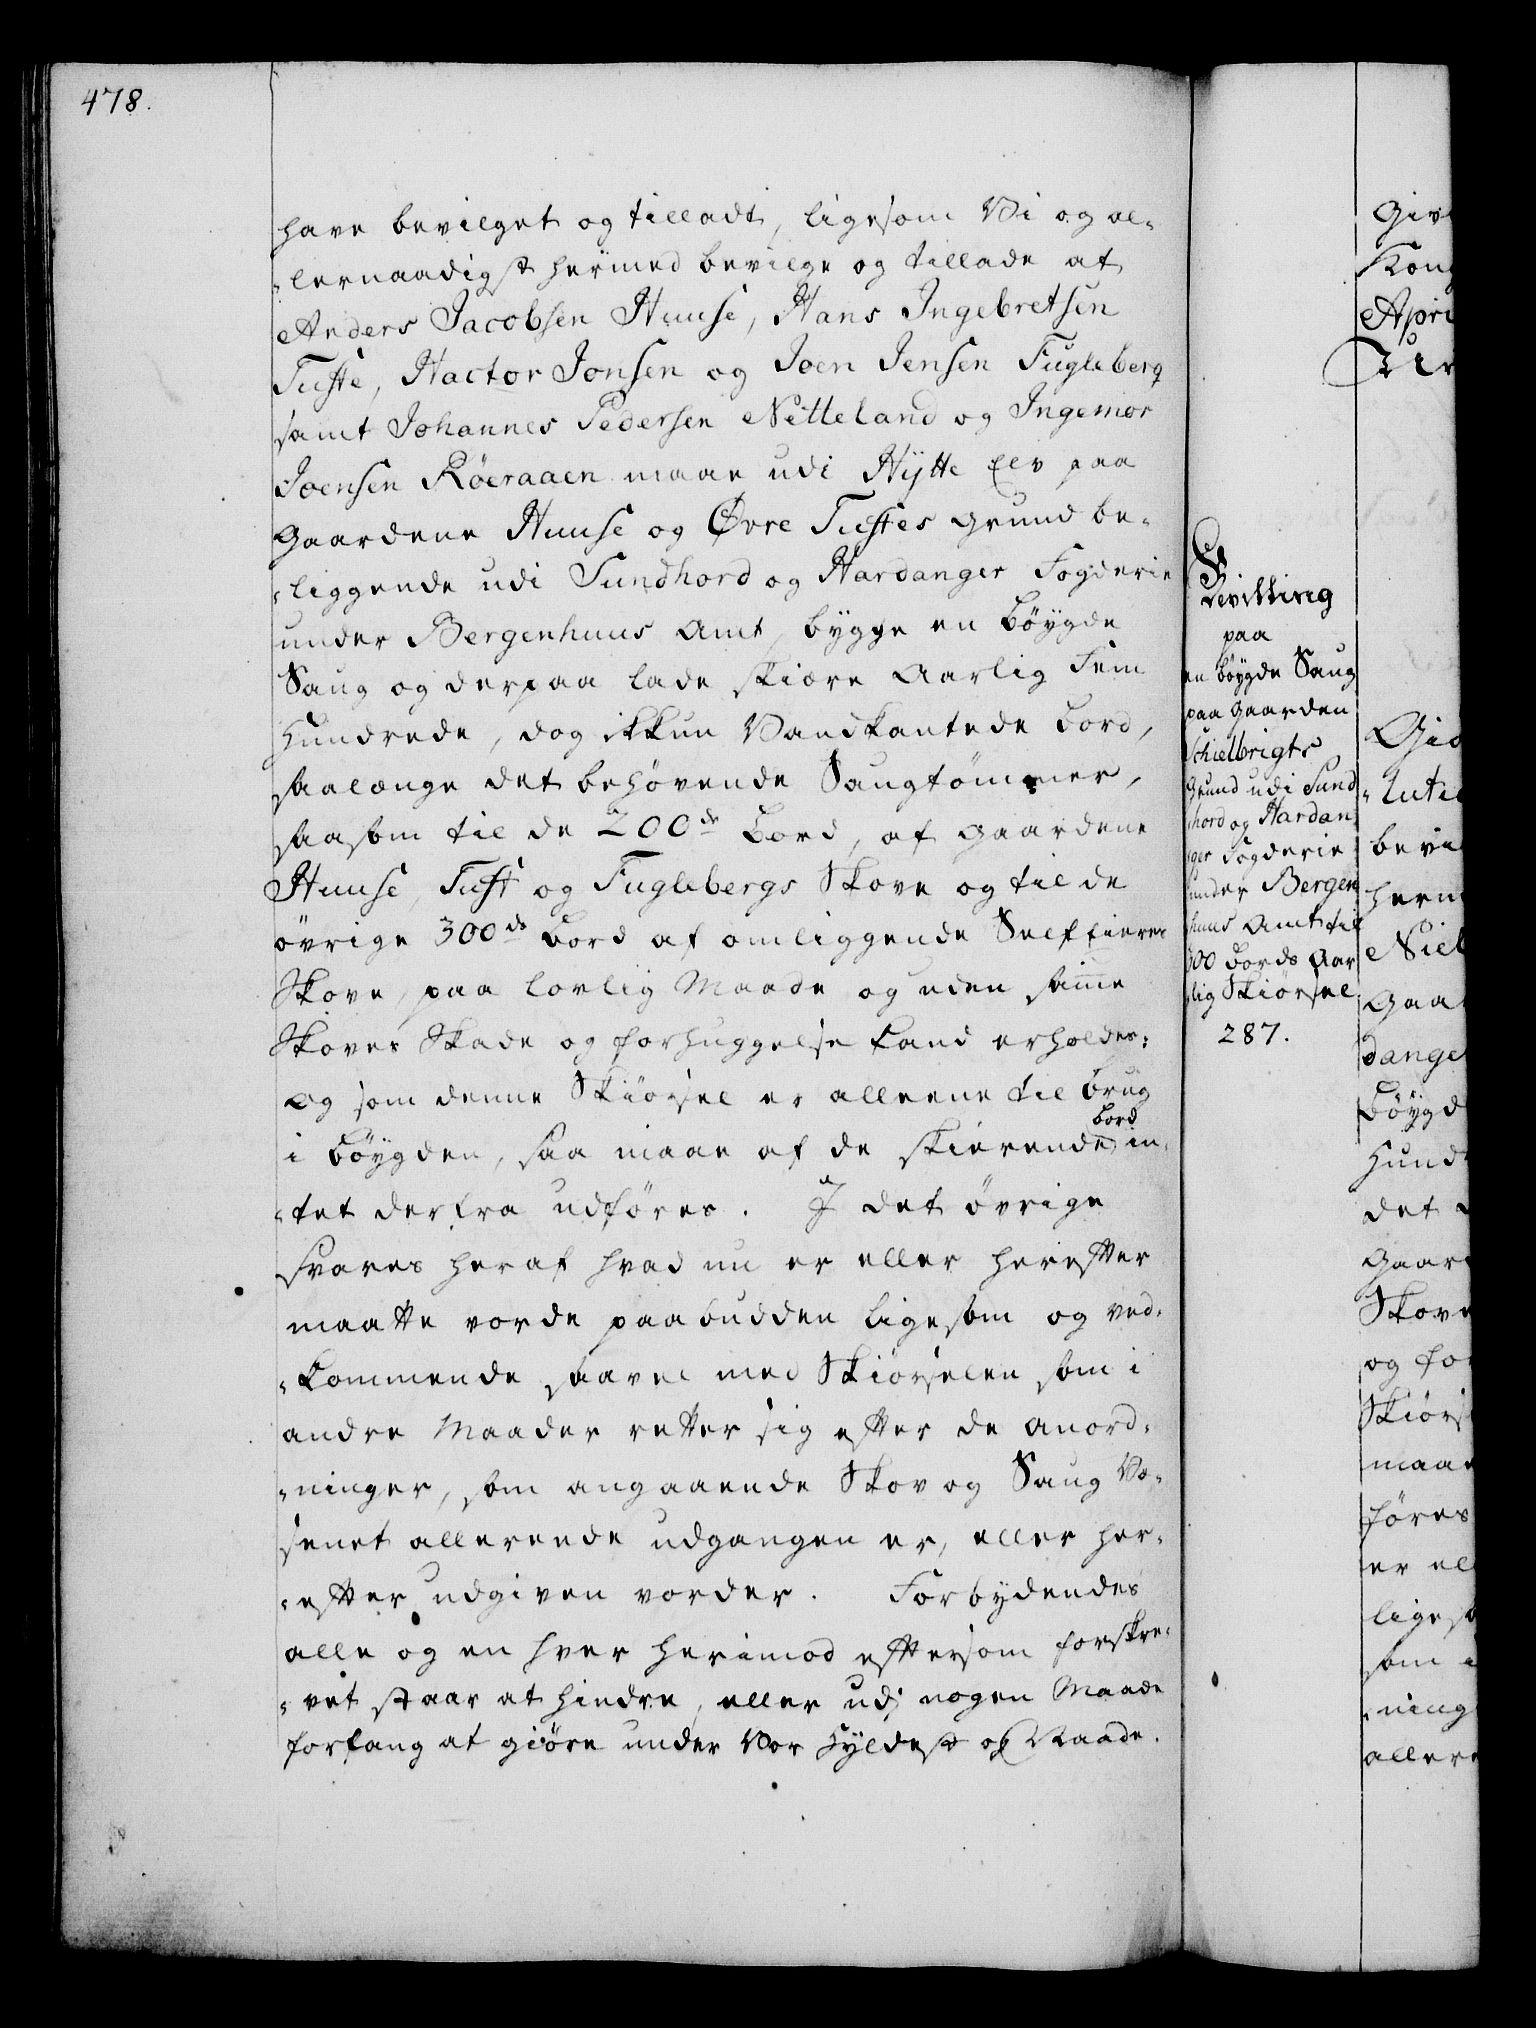 478.
have bevilget og tilladt, ligesom Vi og al-
-lernaadigst hermed bevilge og tillade at
Anders Jacobsen Huuse, Hans Ingebretsen
Tufte, Hactor Jonsen og Joen Jensen Fugleberg
samt Johannes Pedersen Netteland og Ingemor
Joensen Röeraaen maae udi Hÿtte Elv paa
Gaardene Huuse og Øvre Tuftes Grund be-
-liggende udi Sundhord og Hardanger Fogderie
under Bergenhuus Amt, bygge en Böygde
Saug og derpaa lade skiære Aarlig Fem
Hundrede, dog ikkun Vandkantede Bord,
saalænge det behøvende Saugtömmer,
saasom til de 200de Bord, af Gaardene
Huuse, Tuft og Fuglebergs Skove og til de
övrige 300de Bord af omliggende Selfeieres
Skove, paa lovlig Maade og uden samme
Skoves Skade og forhuggelse kand erholdes:
og som denne Skiörsel er alleene til brug
i Böygden, saa maae af de skierende Bord in-
-tet derfra udföres. I det övrige
svares heraf hvad nu er eller herefter
maatte vorde paabudden ligesom og ved-
-kommende saavel med Skiörselen som i
andre Maader retter sig efter de Anord-
-ninger, som angaaende Skov og Saug Væ-
senet allereede udgangen er, eller her-
-efter udgiven vorder. Forbydendes
alle og en hver herimod eftersom forskre-
-vet staar at hindre, eller udj nogen Maade
forfang at giöre under Vor Hyldest og Naade.
Bevilling
paa
en böygde Saug
paa Gaarden
Schielbrigts
Grund udi Sund
hord og Hardan
ger Fogderie
under Bergen
huus Amt til
500 Bords Aar
lig Skiörsel
287.
Giv
Kong
Apri
Gid
-lutie
bevi
herm
Niel
Gaa
dange
Böygd
Hund
det
Gaar
Skove
og for
Skiörs
maae
föres
er ell
ligeso
som i
-ning
allere